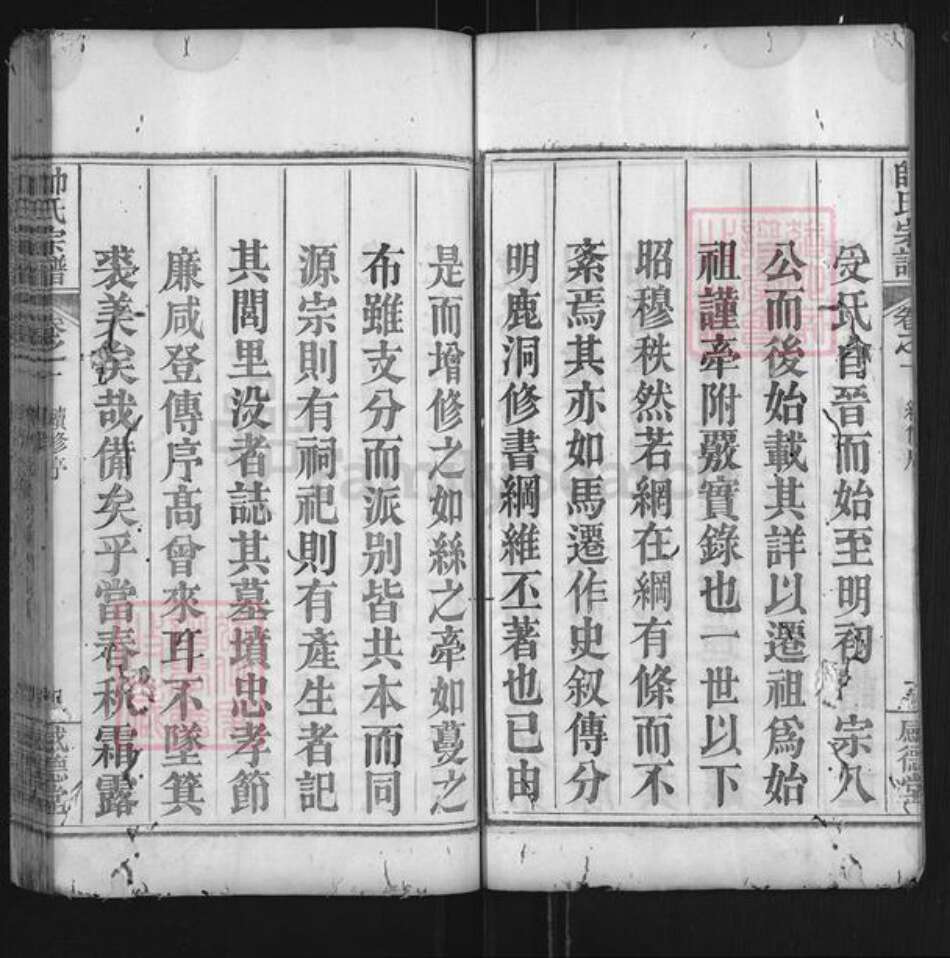 帥氏宗譜 卷之一 續修序 感德堂
受氏自晉而始至明初 宗八
公而後始載其詳以遷祖爲始
祖謹牽附覈實錄也一世以下
昭穆秩然若網在綱有條而不
紊焉其亦如馬遷作史叙傳分
明鹿洞修書綱維丕著也已由
是而增修之如絲之牽如蔓之
布雖支分而派别皆共本而同
源宗則有祠祀則有產生者記
其閭里没者誌其墓墳忠孝節
廉咸登傳序高曾來耳不墜箕
裘美矣哉備矣乎當春秋霜露
帥氏宗譜 卷之一 續修序 感德堂